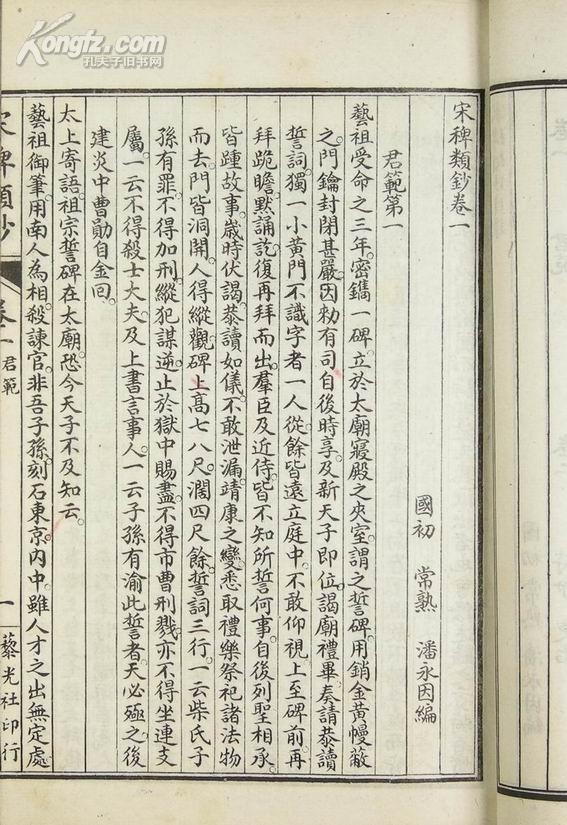 Kongfz.com
孔夫子旧书网
宋稗類鈔卷一
國初　常熟　潘永因編
君範第一
藝祖受命之三年。密鐫一碑。立於太廟寢殿之夾室。謂之誓碑。用銷金黃幔蔽
之。門鑰封閉甚嚴。因勅有司自後時享。及新天子即位。謁廟禮畢。奏請恭讀
誓詞。獨一小黃門不識字者一人從。餘皆遠立庭中。不敢仰視。上至碑前。再
拜跪瞻默誦訖。復再拜而出。羣臣及近侍。皆不知所誓何事。自後列聖相承。
皆踵故事。歲時伏謁。恭讀如儀。不敢泄漏。靖康之變。悉取禮樂祭祀諸法物
而去。門皆洞開。人得縱觀。碑上高七八尺。濶四尺餘。誓詞三行。一云柴氏子
孫有罪。不得加刑。縱犯謀逆。止於獄中賜盡。不得市曹刑戮。亦不得坐連支
屬。一云不得殺士大夫。及上書言事人。一云子孫有渝此誓者。天必殛之。後
建炎中曹勛自金回。
太上寄語。祖宗誓碑在太廟。恐今天子不及知云。
藝祖御筆。用南人為相。殺諫官。非吾子孫。刻石東京內中。雖人才之出無定處
宋稗類鈔
卷一　君範
一
藜光社印行